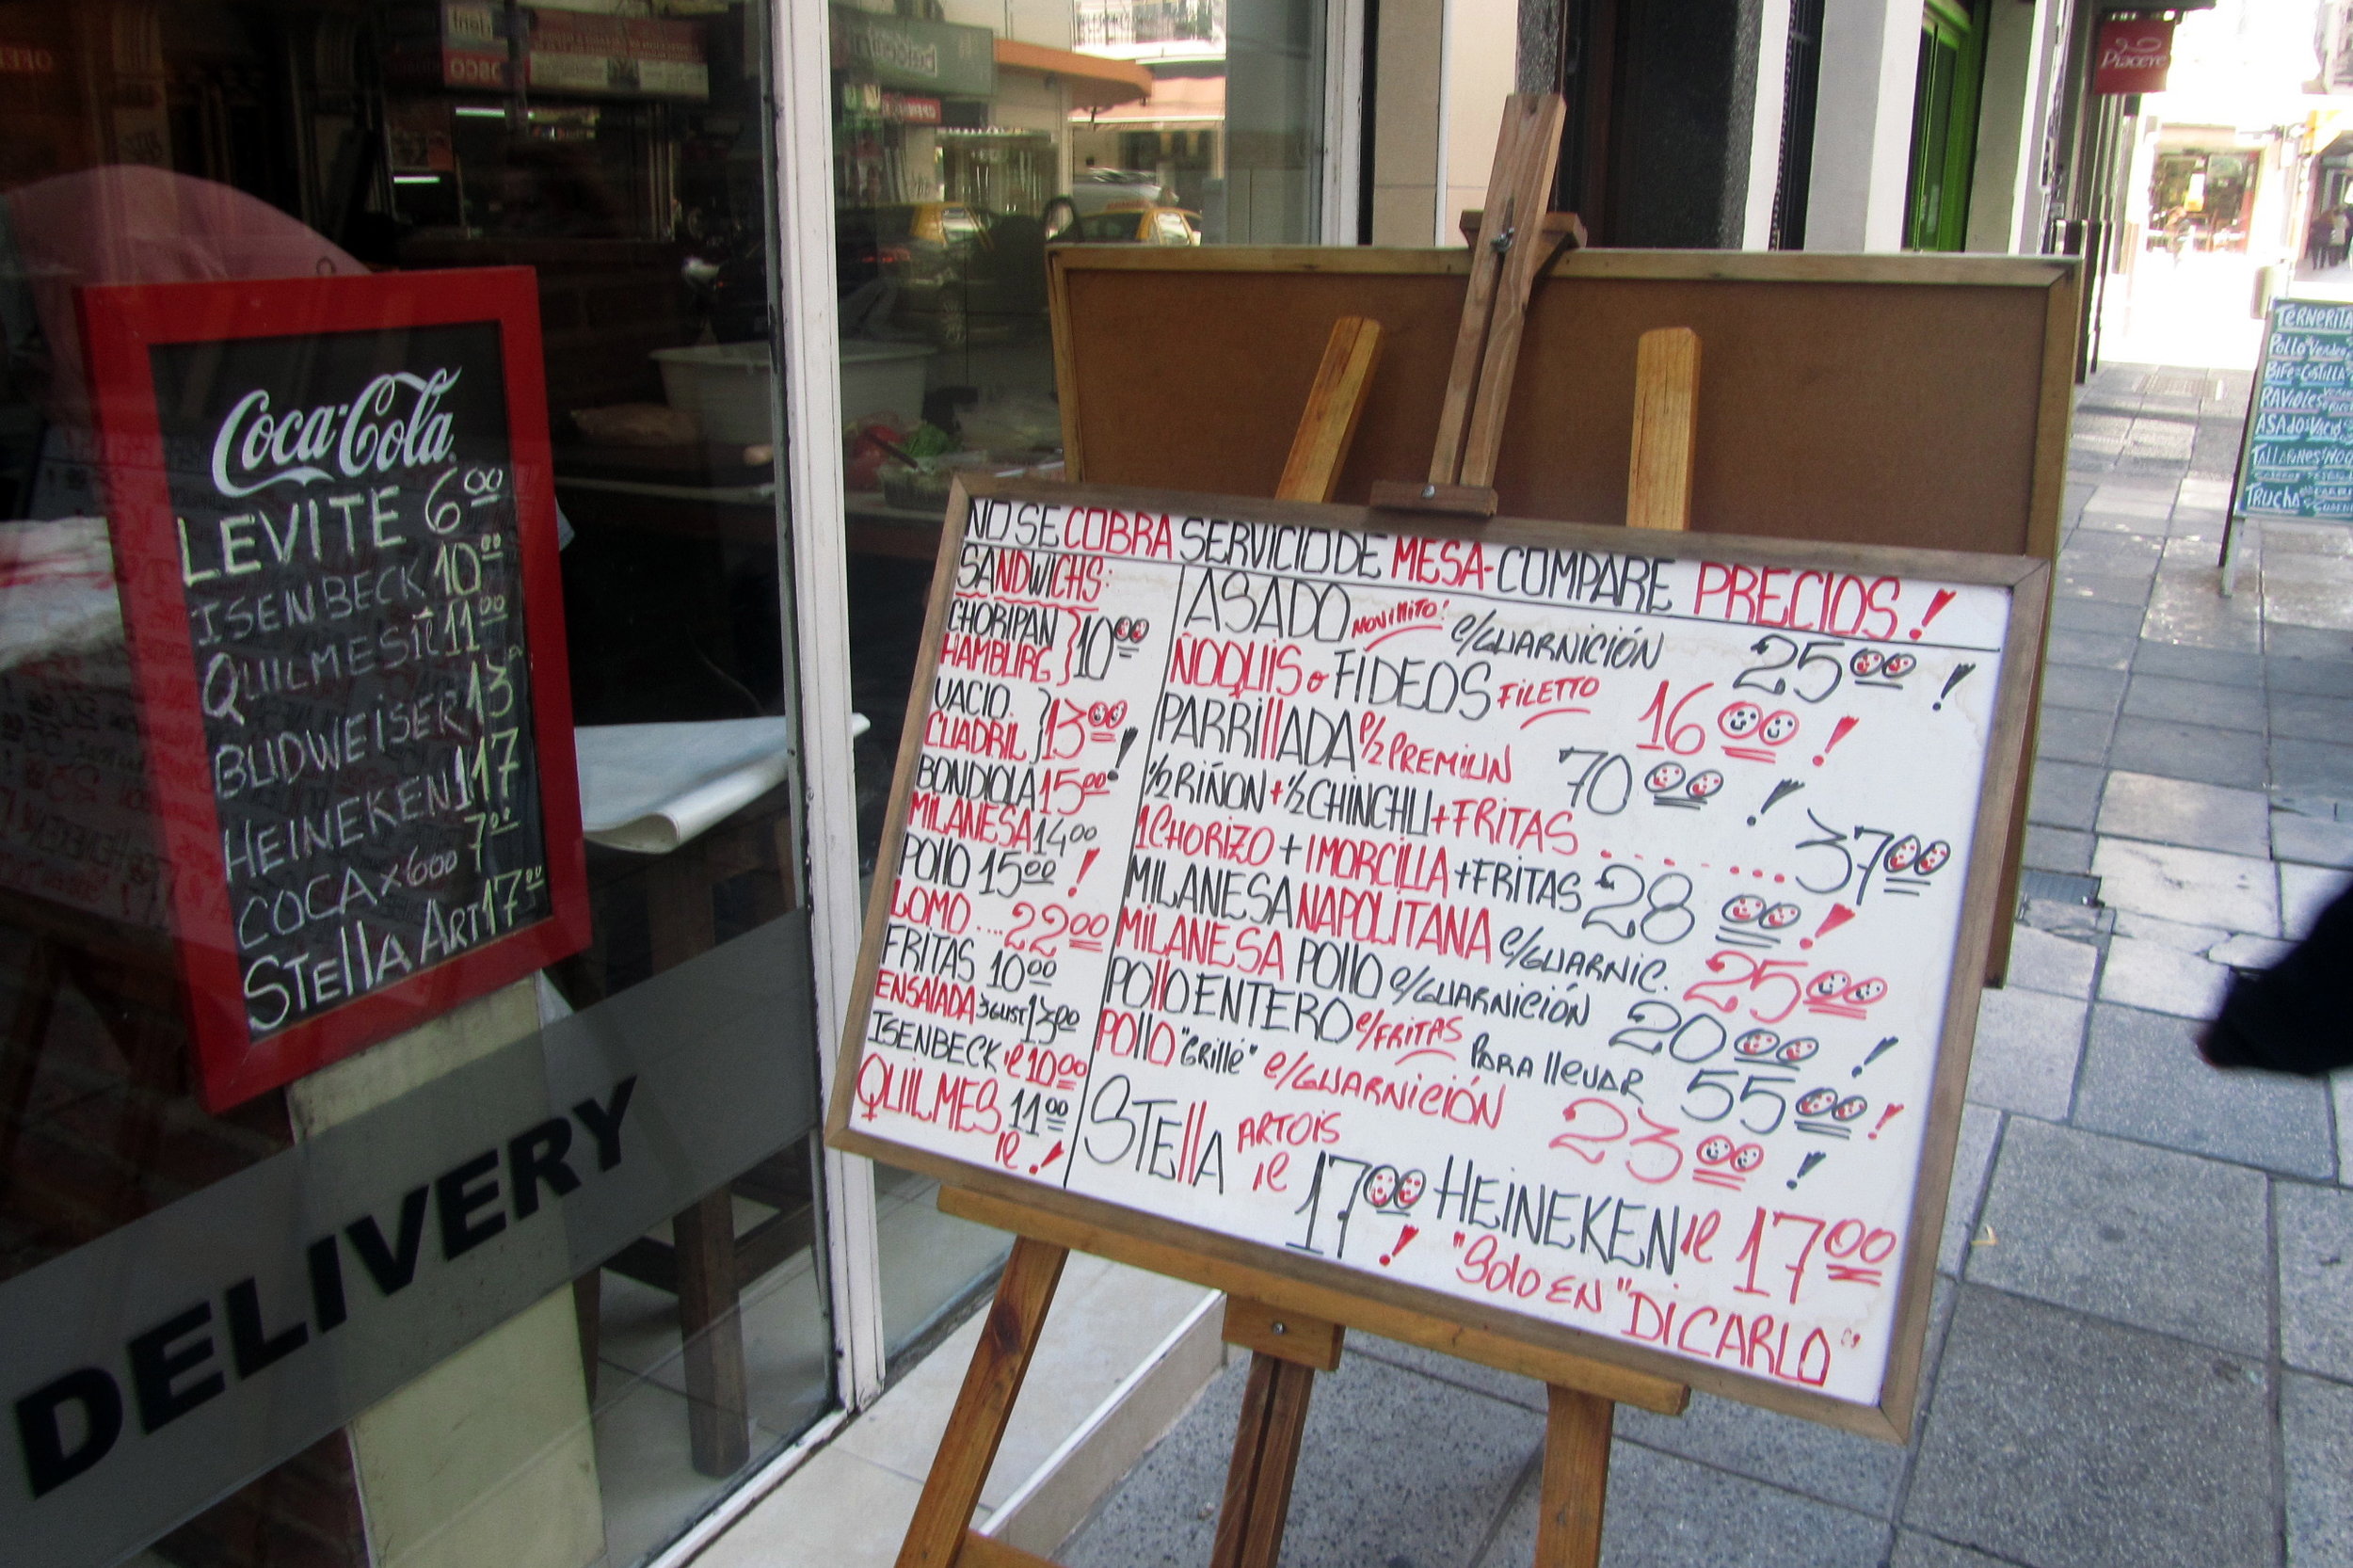 Coca-Cola
LEVITE 6.00
ISENBECK 10.00
QUILMES 1l 11.00
BUDWEISER 13
HEINEKEN 1l 17
COCA x 600 7.00
STEllA ART 17.00
DELIVERY
NO SE COBRA SERVICIO DE MESA - COMPARE PRECIOS!
SANDWICHS:
CHORIPAN
HAMBURG } 10.00
VACIO.
CUADRIL } 13.00!
BONDIOLA 15.00
MILANESA 14.00
POllO 15.00!
LOMO... 22.00
FRITAS 10.00
ENSAlADA 3 GUST 13.00
ISENBECK 1l 10.00
QUILMES 11.00
1l!
ASADO NOVIllITO! C/GUARNICIÓN 25.00!
ÑOQUIS o FIDEOS FILETTO 16.00!
PARRIllADA P/2 PREMIUN 70.00!
1/2 RIÑON + 1/2 CHINCHU + FRITAS ........ 37.00
1 CHORIZO + 1 MORCILLA + FRITAS 28.00!
MILANESA NAPOLITANA C/GUARNIC. 25.00
MILANESA POllO C/GUARNICIÓN 20.00!
POllO ENTERO C/FRITAS PARA llEVAR 55.00!
POllO "Grillé" C/GUARNICIÓN 23.00!
STEllA ARTOIS 1l 17.00! HEINEKEN 1l 17.00
"Solo EN "DI CARLO"
Piacere
TERNERITA
Pollo
BIFE COSTILLA
RAVIOLES
ASADO VACIO
TALLARINES ÑOQ
TRUCHA